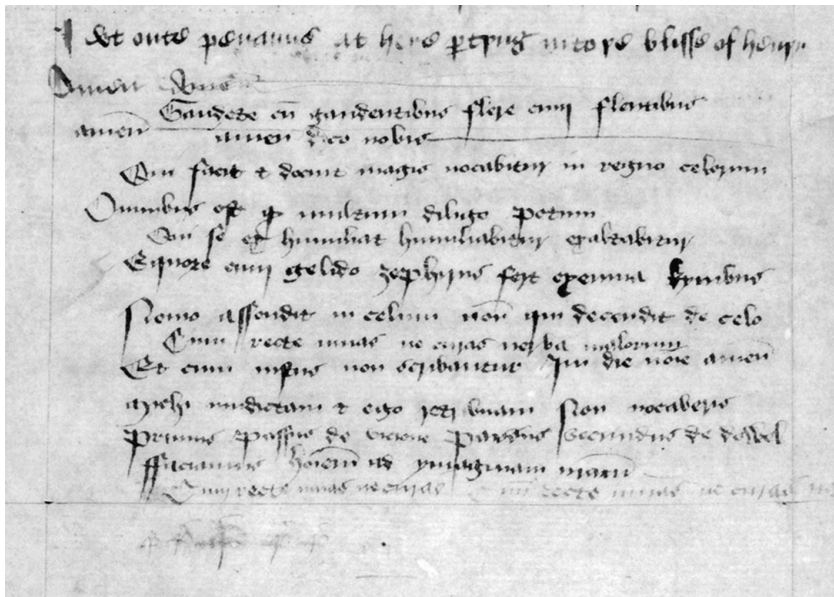 at here ptyng in to þe blisse of heuyn
Amen
Gaudete cu gaudentibus flere cum flentibus
amen amen deo nobis
Qui facit & docuit magis vocabitur in regno celorum
Omnibus est multum diligo potum
Qui se humiliat humiliabitur exaltabitur
Equore cum gelido zephyrus fert exennia kymbus
Nemo assendit in celum non qui decendit de celo
Cum recte viuas ne cures verba malorum
Et cum iustus non scribantur In die noie amen
michi vindictam & ego retribuam Non vocaberis
Primus Passus de Secundus de dowel
ffaciamus hoiem ad ymaginam nram
Cum recte viuas ne cures Cum recte viuas ne cures